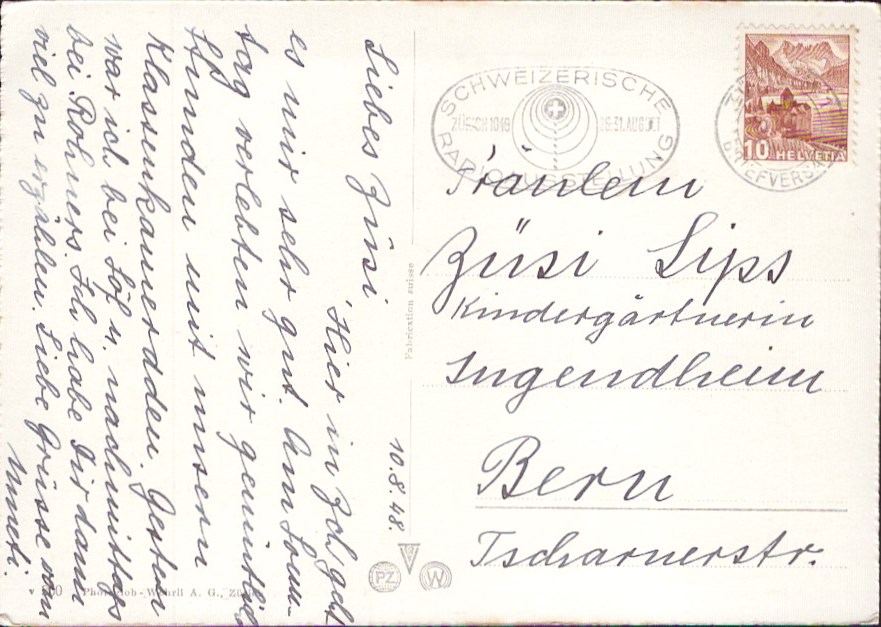 10.8.48.
Liebes Züsi
Hier in Zch. geht
es mir sehr gut. Am Sonn-
tag verlebten wir gemütlich
Stunden mit unsern
Klassenkameradden. Gestern
war ich bei u. nachmittags
bei Rohners. Ich habe Dir dann
viel zu erzählen. Liebe Grüsse von
SCHWEIZERISCHE
ZÜRICH 1948 26-31. AUGUST
RADIOAUSSTELLUNG
BRIEFVERSAND
10 HELVETIA
Fräulein
Züsi Lips
Kindergärtnerin
Jugendheim
Bern
Tscharnerstr.
Fabrication suisse
PZ W
Photoglob-Wehrli A. G., Zürich